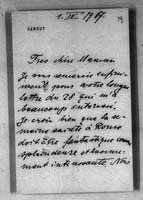 1. IV 1917.
19
SANGUY
Tres chère Maman
Je vous remercie infini-
ment pour votre longue
lettre du 28 qui m'a
beaucoup intéressé.
Je crois bien que la se-
maine sainte à Rome
doit être fantastique comme
splendeur et énormé-
ment intéressante. Nous